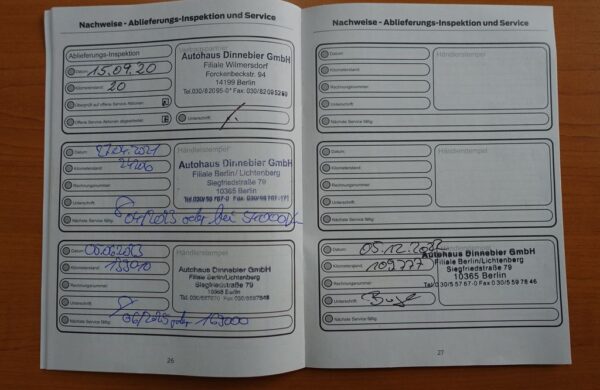 Nachweise - Ablieferungs-Inspektion und Service
Ablieferungs-Inspektion
Datum: 15.09.20
Kilometerstand: 20
Überprüft auf offene Service-Aktionen:
Offene Service-Aktionen abgearbeitet:
Autohaus Dinnebier GmbH
Filiale Wilmersdorf
Forckenbeckstr. 94
14199 Berlin
Unterschrift:
Datum:
Kilometerstand: 24206
Rechnungsnummer:
Unterschrift:
Nächste Service fällig: 04/2023 oder bei
Händlerstempel
Autohaus Dinnebier GmbH
Filiale Berlin/Lichtenberg
Siegfriedstraße 79
10365 Berlin
Datum:
Kilometerstand: 139010
Rechnungsnummer:
Unterschrift:
Nächste Service fällig: 06/2025 oder 169000
Händlerstempel
Autohaus Dinnebier GmbH
Filiale Berlin/Lichtenberg
Siegfriedstraße 79
10365 Berlin
26
Nachweise - Ablieferungs-Inspektion und Service
Datum:
Kilometerstand:
Rechnungsnummer:
Unterschrift:
Nächste Service fällig:
Händlerstempel
Datum:
Kilometerstand:
Rechnungsnummer:
Unterschrift:
Nächste Service fällig:
Händlerstempel
Datum: 05.12.2022
Kilometerstand: 109777
Rechnungsnummer:
Unterschrift:
Nächste Service fällig:
Autohaus Dinnebier GmbH
Filiale Berlin/Lichtenberg
Siegfriedstraße 79
10365 Berlin
Tel.030/5 57 67-0 Fax 030/5 59 78 46
27